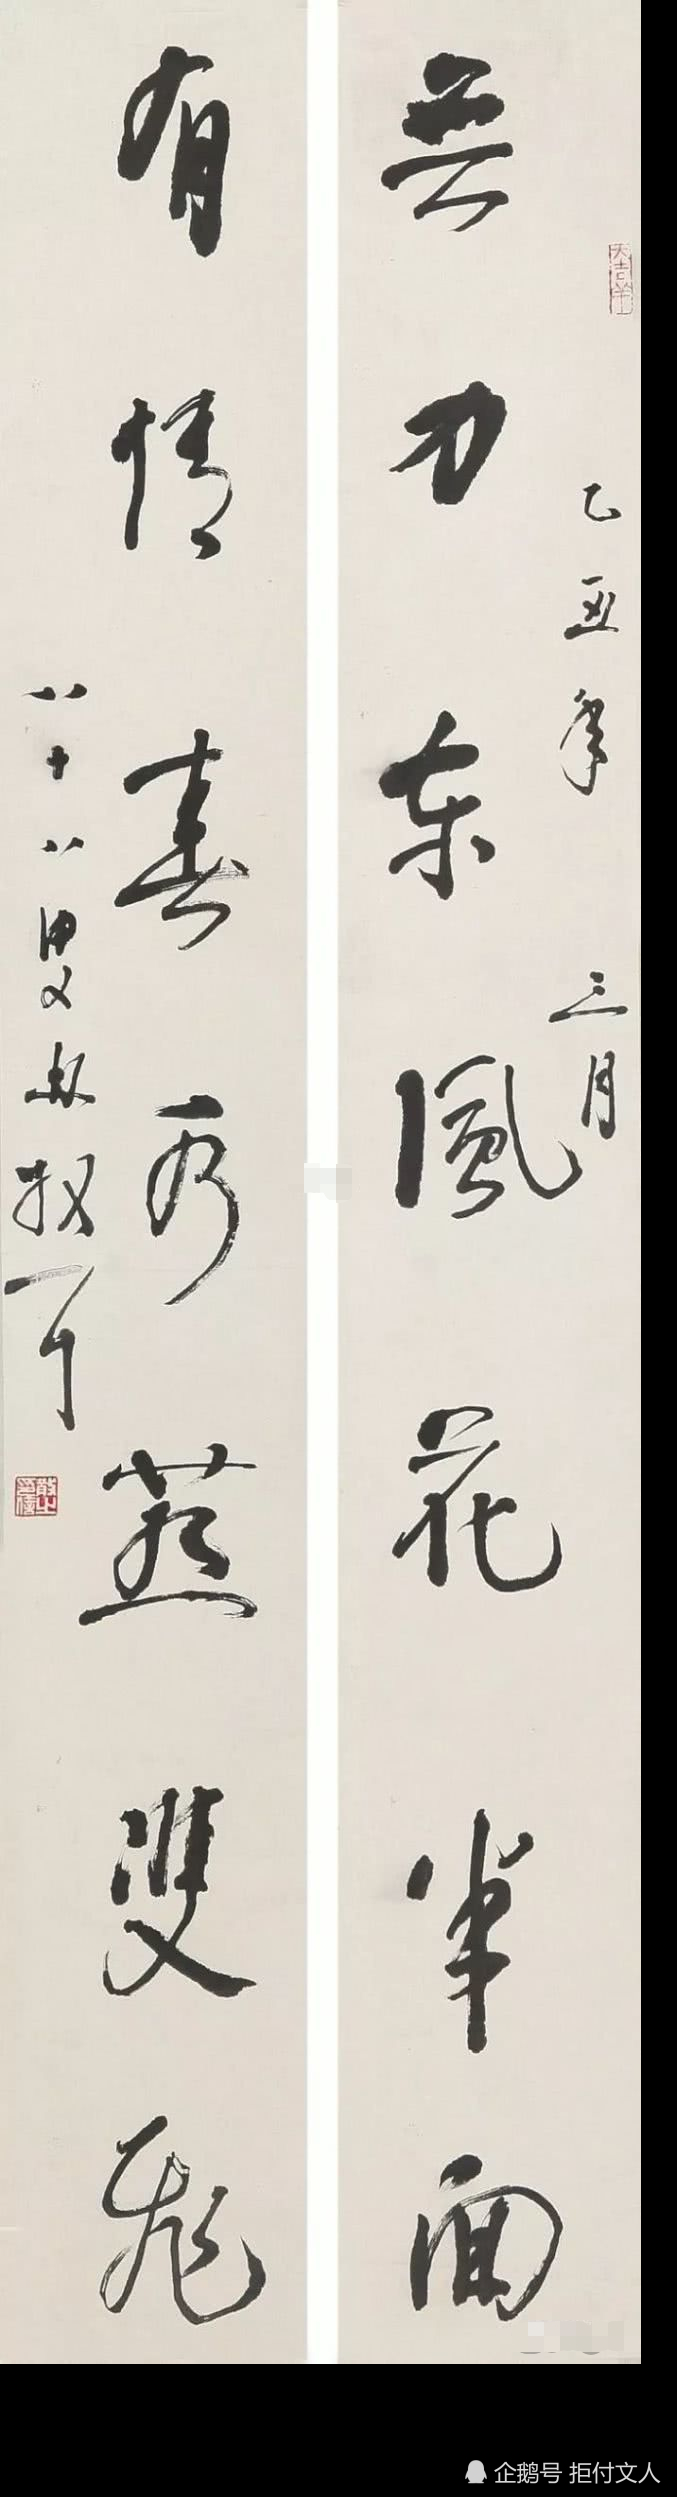 無力东風花半面
乙丑年三月
大吉羊
有情春燕雙飛
八十八叟林散耳
企鹅号 拒付文人